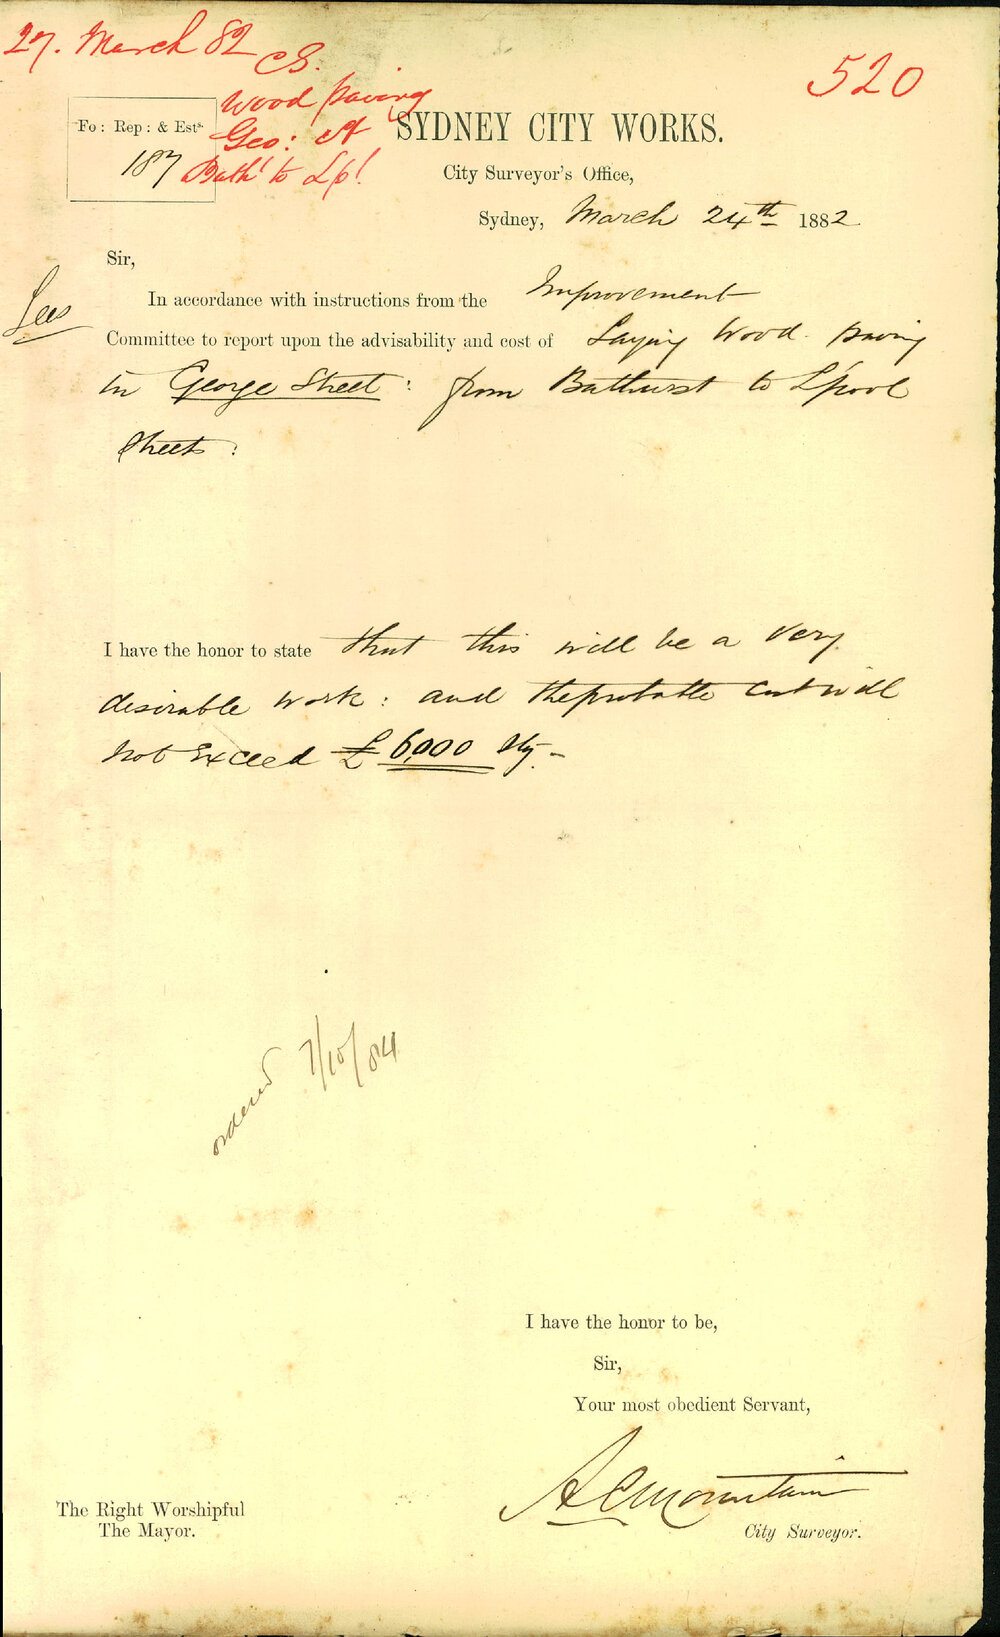 27. March 82 CS.
520
Wood paving
Geo: St
Bath' to Lp!
Fo: Rep: & Ests
187
SYDNEY CITY WORKS.
City Surveyor's Office,
Sydney, March 24th 1882.
Sir,
In accordance with instructions from the Improvement
Committee to report upon the advisability and cost of Laying Wood Paving
in George Street: from Bathurst to L'pool
Streets:
I have the honor to state that this will be a very
desirable work: and the probable cost will
not exceed £6,000 Stg. –
ordered 7/10/84
I have the honor to be,
Sir,
Your most obedient Servant,
A C Mountain
City Surveyor.
The Right Worshipful
The Mayor.